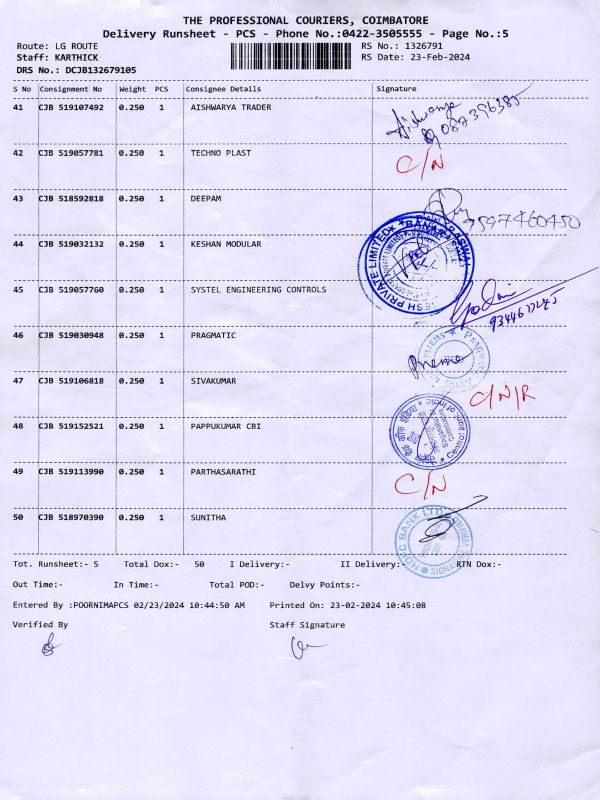 THE PROFESSIONAL COURIERS, COIMBATORE
Delivery Runsheet - PCS - Phone No.:0422-3505555 - Page No.:5
Route: LG ROUTE
RS No.: 1326791
Staff: KARTHICK
RS Date: 23-Feb-2024
DRS No.: DCJB132679105
S No Consignment No Weight PCS Consignee Details Signature
41 CJB 519107492 0.250 1 AISHWARYA TRADER
42 CJB 519057781 0.250 1 TECHNO PLAST C/N
43 CJB 518592818 0.250 1 DEEPAM
44 CJB 519032132 0.250 1 KESHAN MODULAR
45 CJB 519057760 0.250 1 SYSTEL ENGINEERING CONTROLS
46 CJB 519030948 0.250 1 PRAGMATIC
47 CJB 519106818 0.250 1 SIVAKUMAR C/N/R
48 CJB 519152521 0.250 1 PAPPUKUMAR CBI
49 CJB 519113990 0.250 1 PARTHASARATHI C/N
50 CJB 518970390 0.250 1 SUNITHA HDFC BANK LTD
Tot. Runsheet:- 5 Total Dox:- 50 I Delivery:- II Delivery:- RTN Dox:-
Out Time:- In Time:- Total POD:- Delvy Points:-
Entered By :POORNIMAPCS 02/23/2024 10:44:50 AM Printed On: 23-02-2024 10:45:08
Verified By Staff Signature